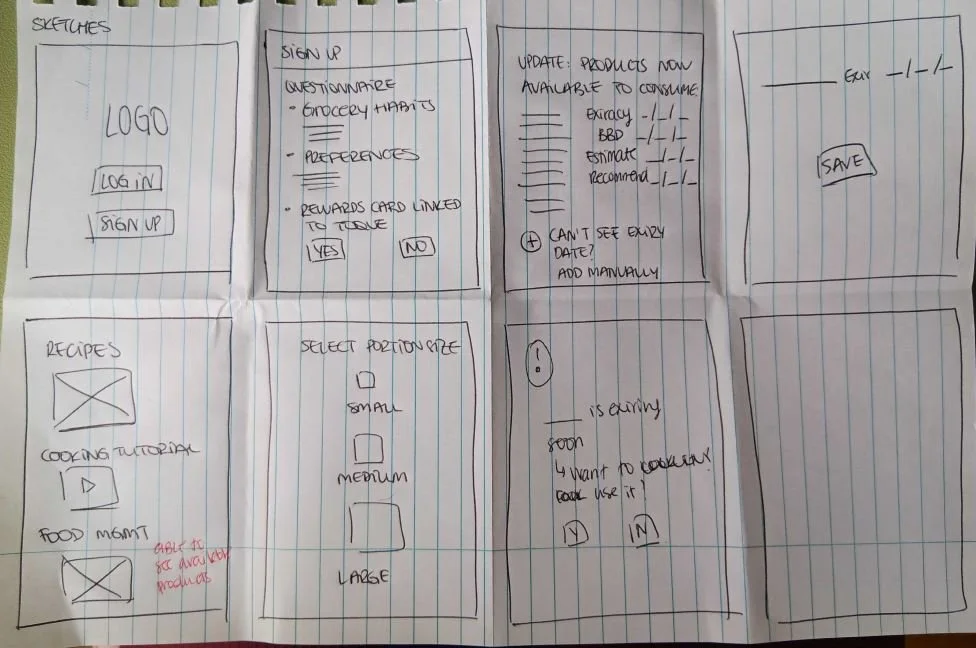 SKETCHES
LOGO
LOG IN
SIGN UP
SIGN UP
QUESTIONNAIRE
- GROCERY HABITS
- PREFERENCES
- REWARDS CARD LINKED
TO
YES NO
UPDATE: PRODUCTS NOW
AVAILABLE TO CONSUME
Exiracy -/-/-
BBD -/-/-
Estimate -/-/-
Recommend -/-/-
+ CAN'T SEE EXIRY
DATE?
ADD MANUALLY
Exir -/-/-
SAVE
RECIPES
COOKING TUTORIAL
FOOD MGMT
able to
see available
products
SELECT PORTION SIZE
SMALL
MEDIUM
LARGE
!
___ is exiring
soon
↳ Want to
use it!
Y N